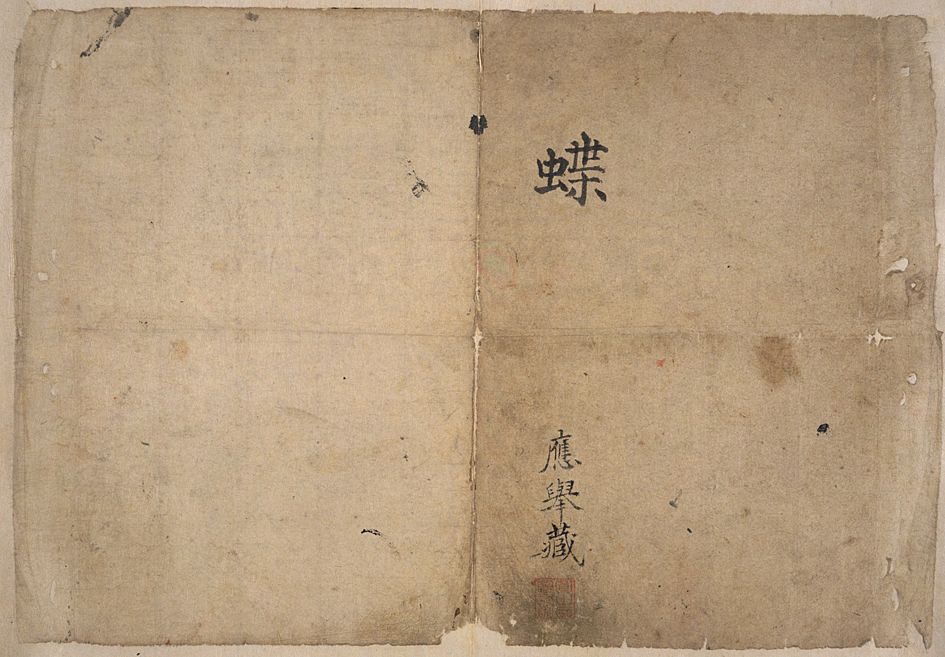 蝶
應舉藏